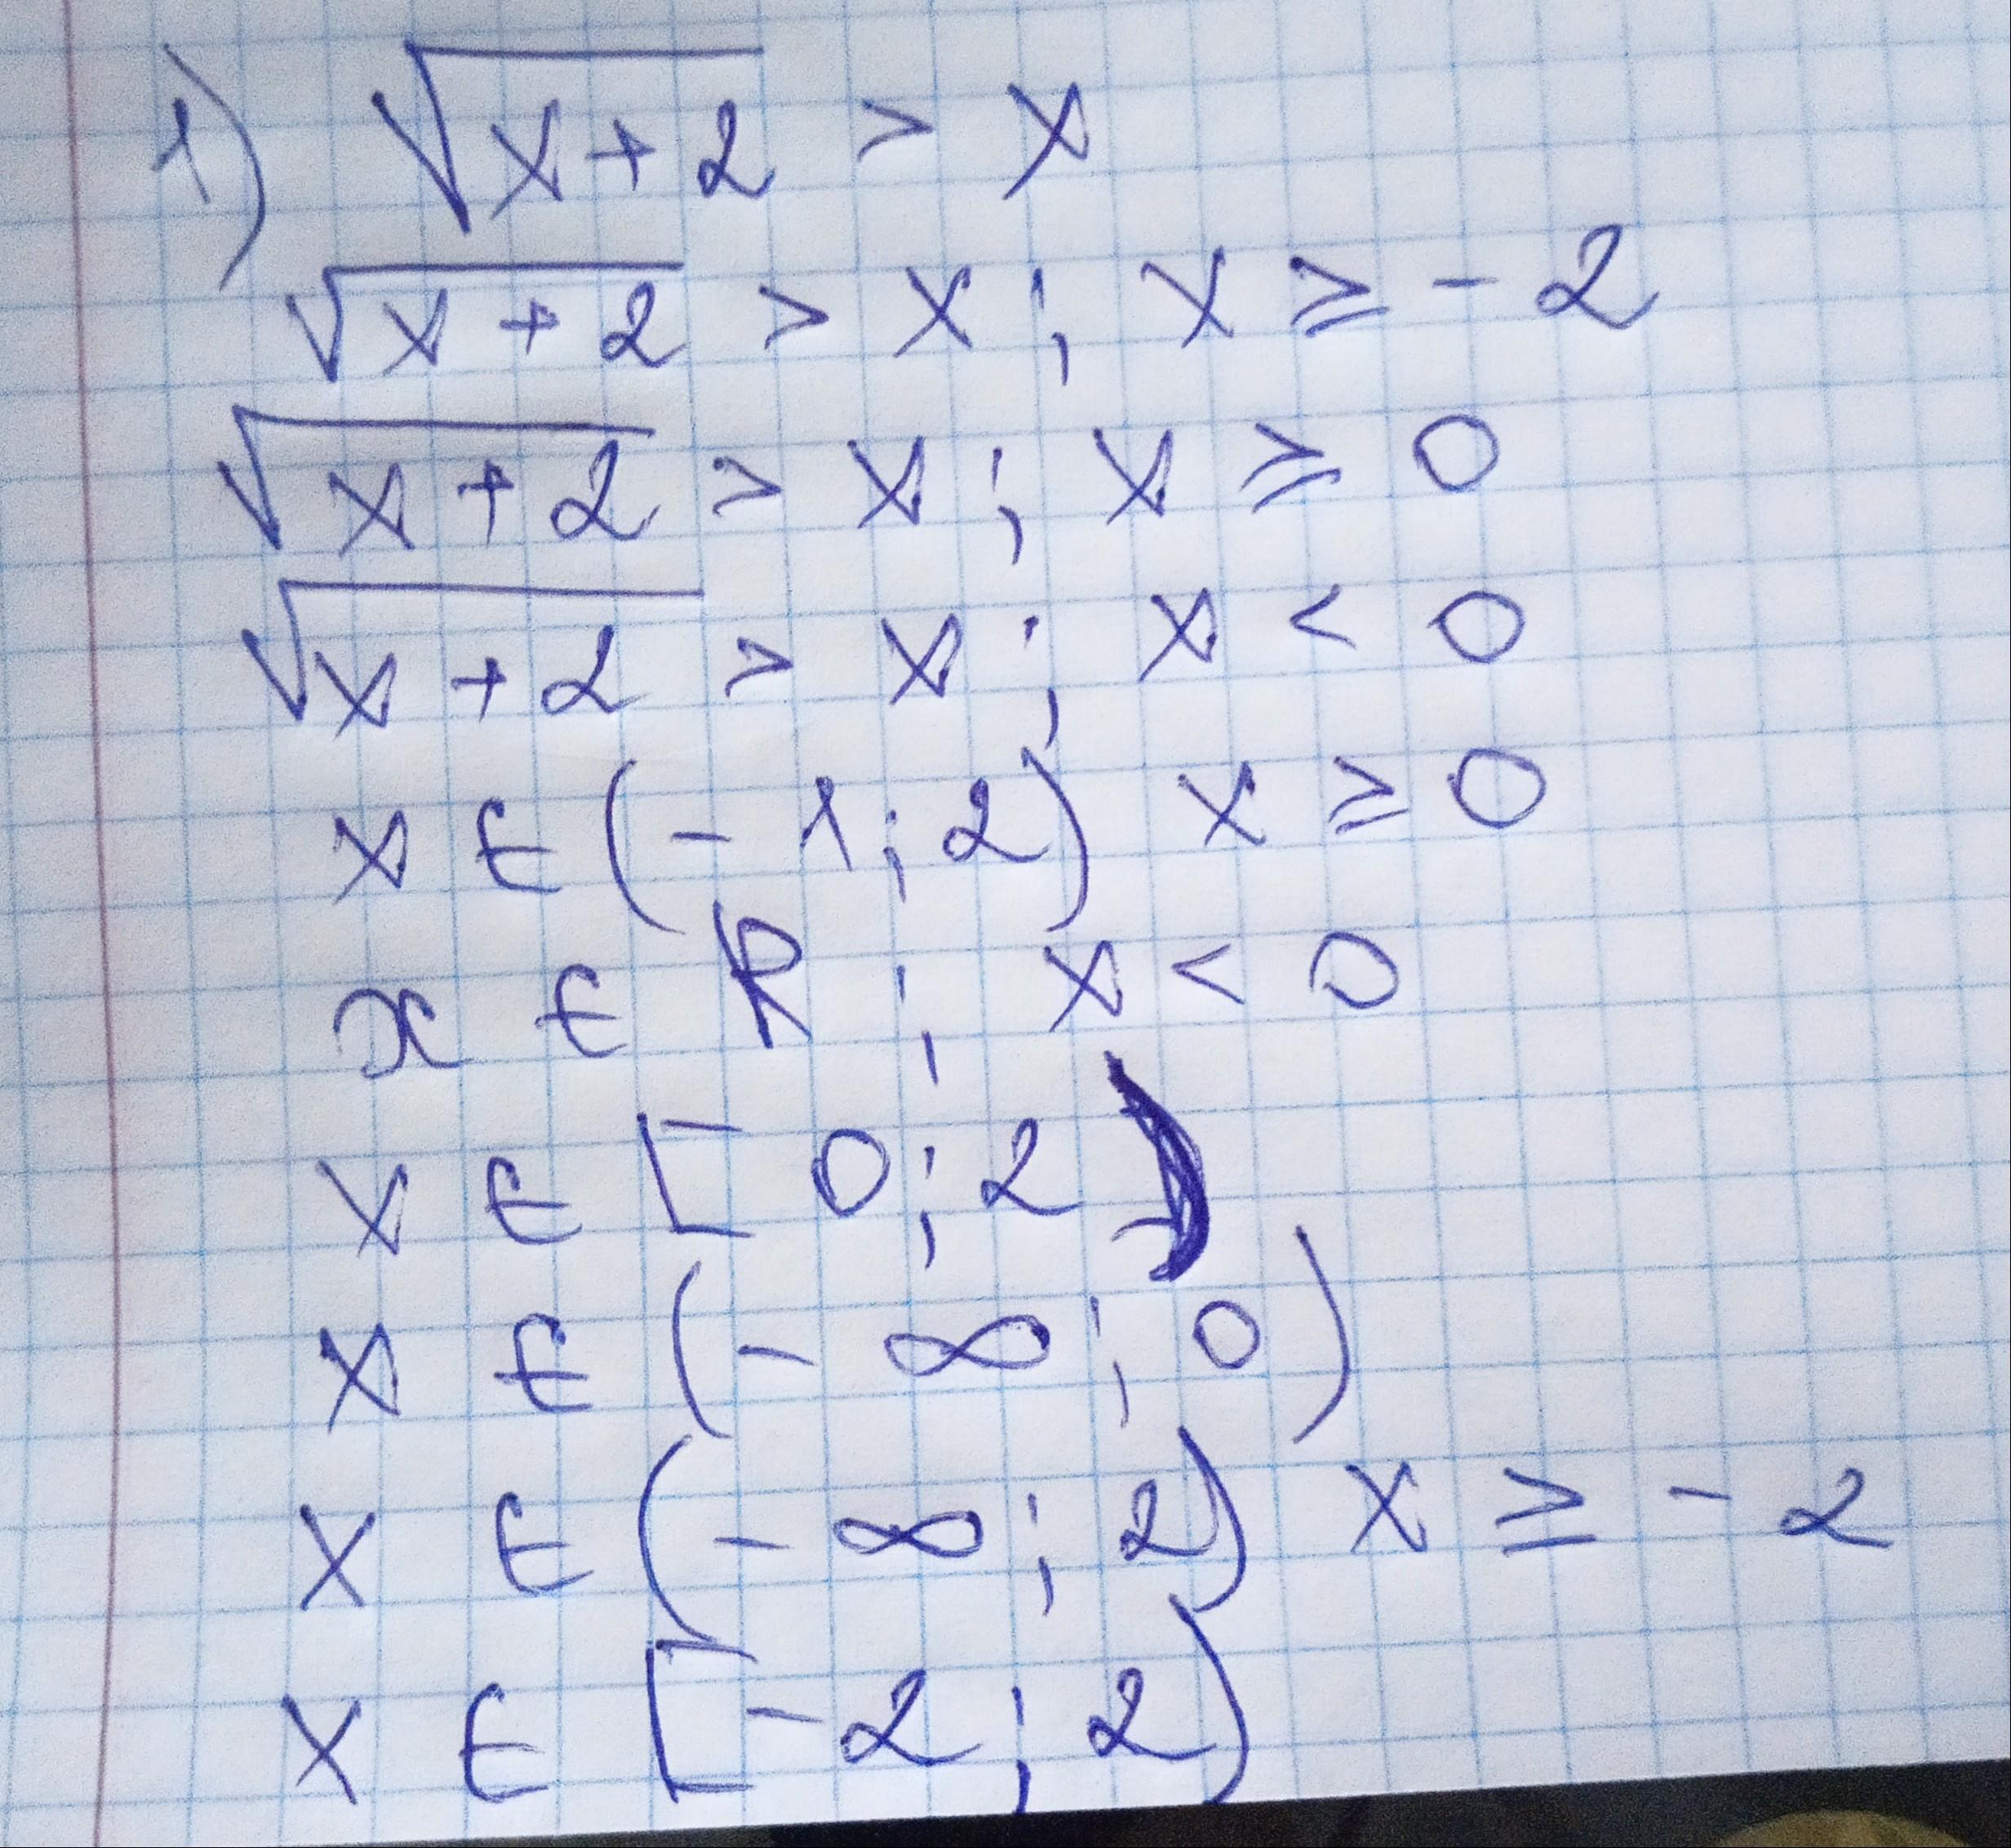 1) √x+2 > x
√x+2 > x ; x ≥ - 2
√x+2 > x ; x ≥ 0
√x+2 > x ; x < 0
x ∈ (- 1 ; 2) x ≥ 0
x ∈ R ; x < 0
x ∈ [ 0 ; 2 )
x ∈ (- ∞ ; 0 )
x ∈ (- ∞ ; 2) x ≥ - 2
x ∈ [-2 ; 2)